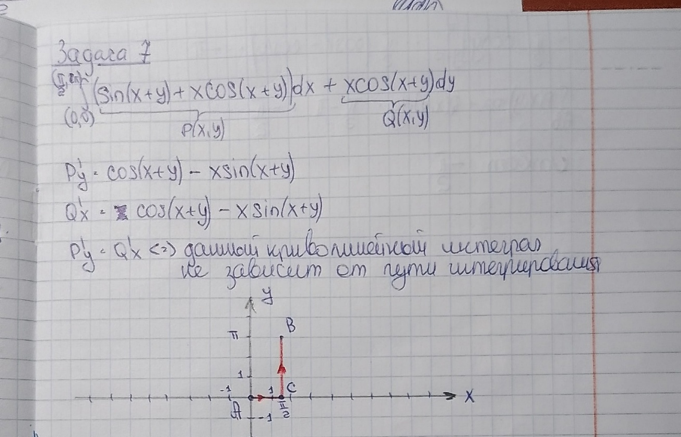 Задача 7
∫ (sin(x+y) + xcos(x+y))dx + xcos(x+y)dy
(0,0)
P(x,y) Q(x,y)
P'y = cos(x+y) - xsin(x+y)
Q'x = cos(x+y) - xsin(x+y)
P'y = Q'x <=> данный криволинейный интеграл
не зависит от пути интегрирования
y
π B
1
-1 1 C x
A π/2
-1